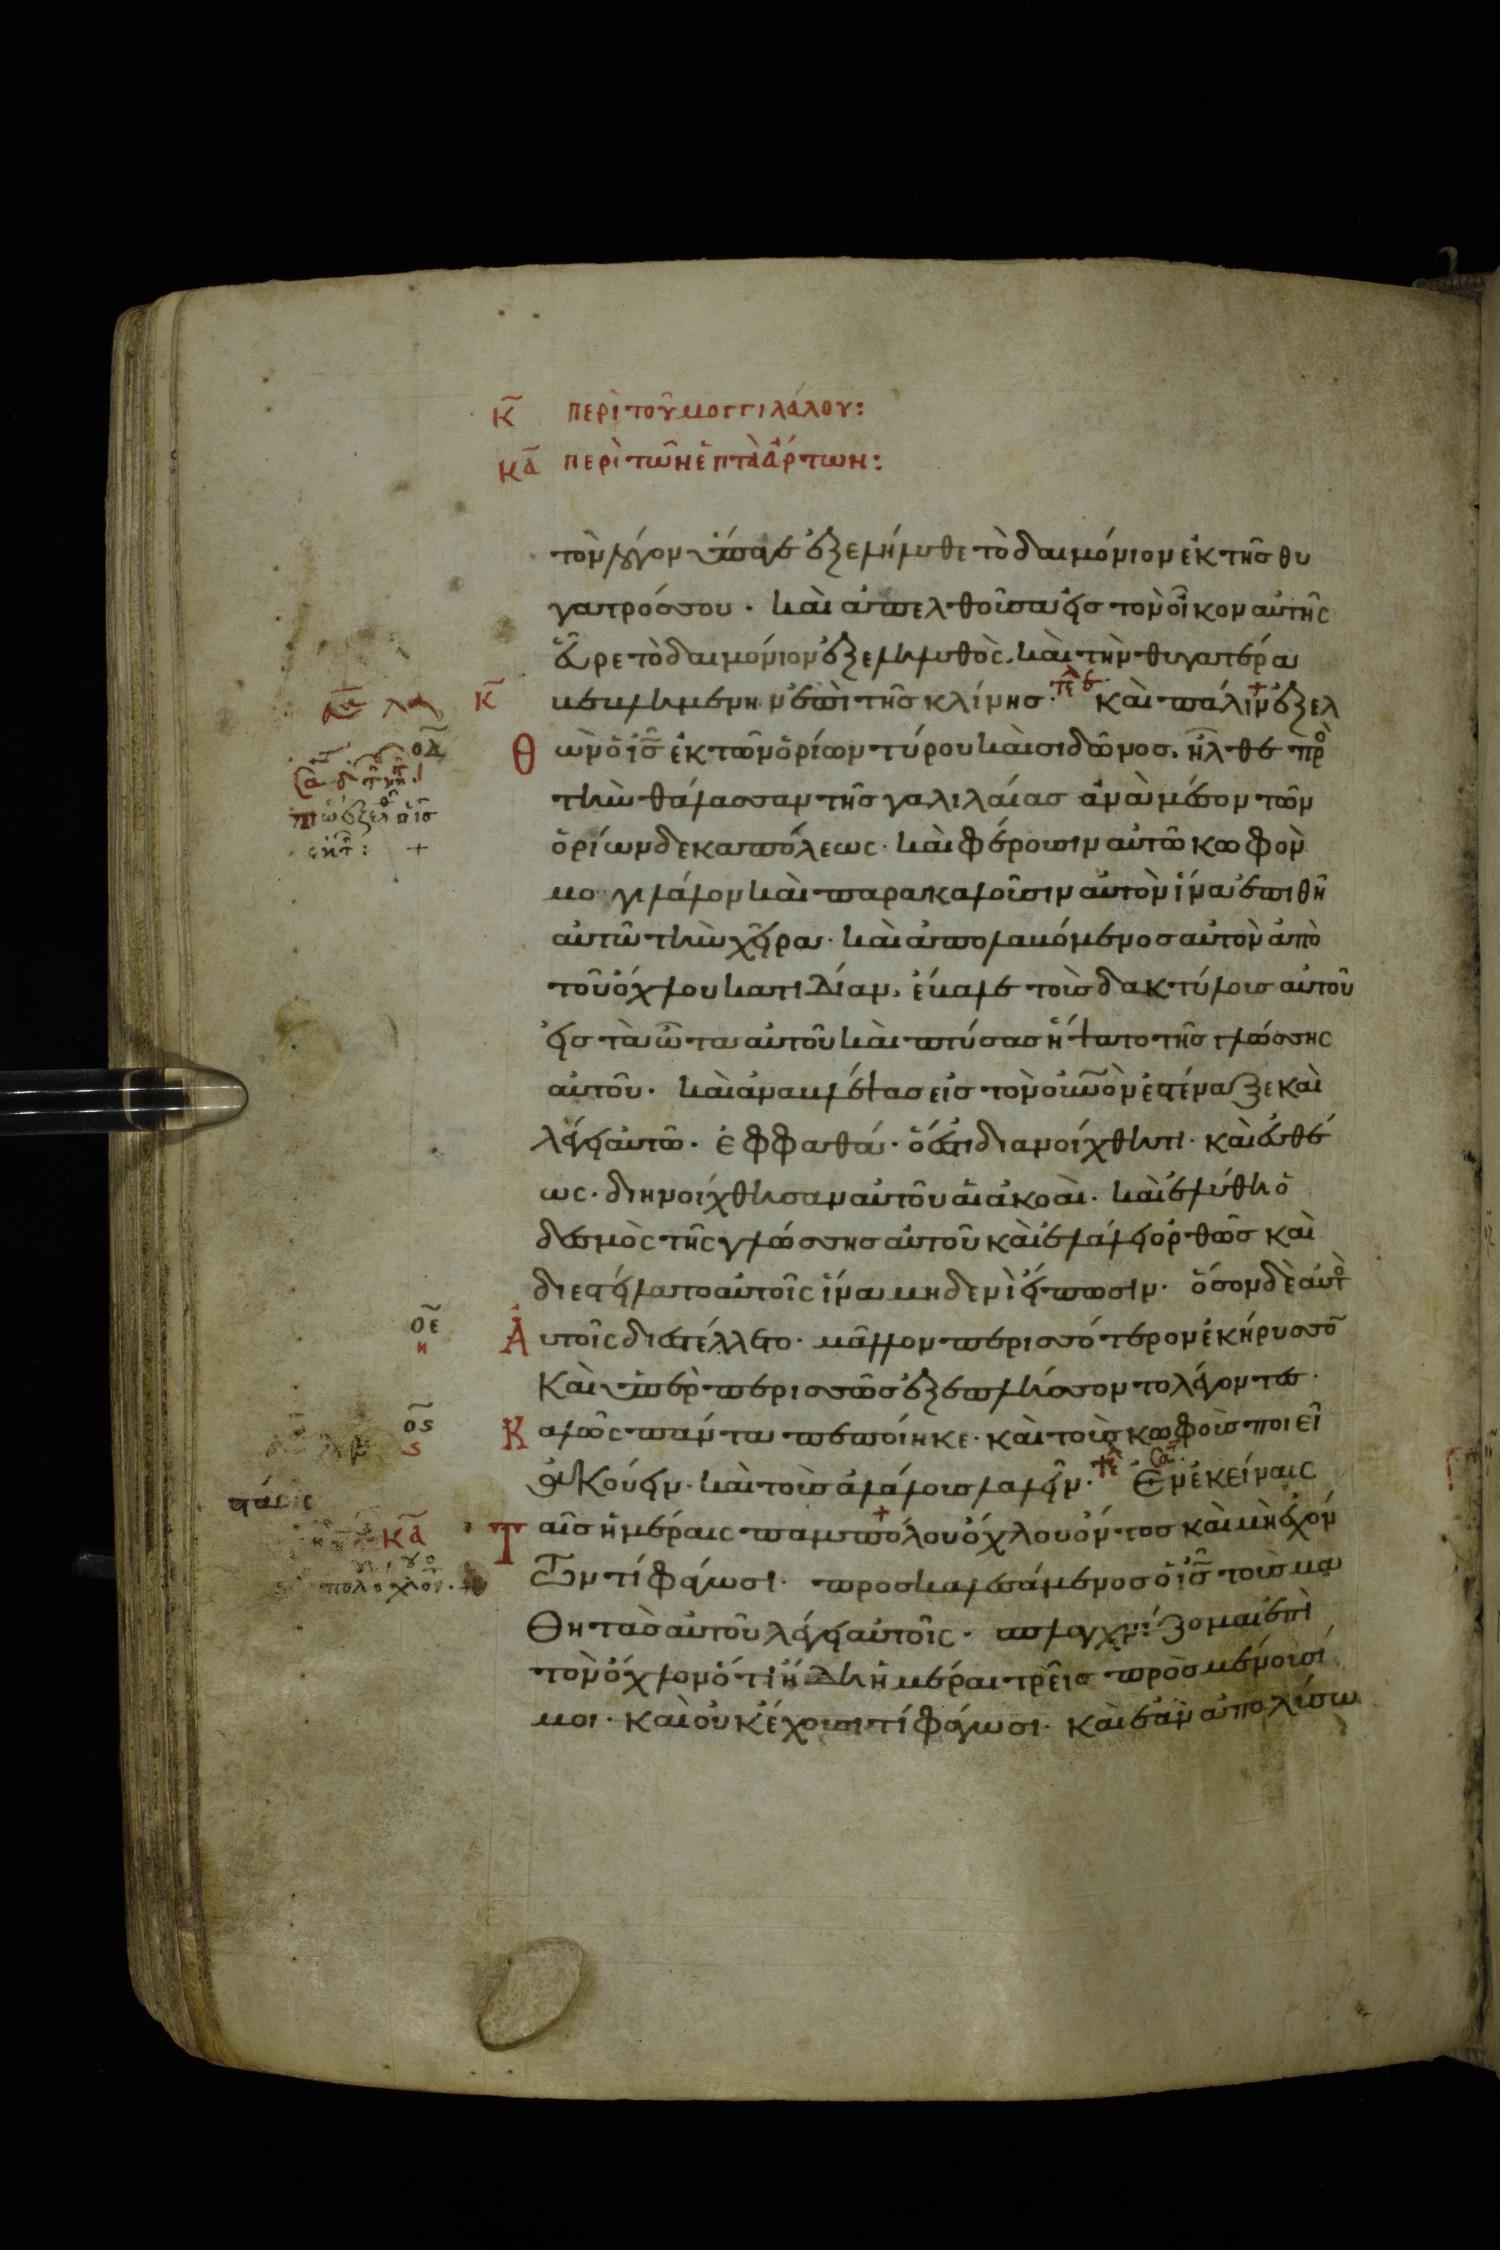 κ̅ περὶ τοῦ μογγιλάλου:
κα̅ περὶ τῶν ἑπτὰ ἄρτων:
τὸν λόγον ὕπαγε ἐξελήλυθε τὸ δαιμόνιον ἐκ τῆς θυ
γατρός σου · καὶ ἀπελθοῦσα εἰς τὸν οἶκον αὐτῆς
εὗρε τὸ δαιμόνιον ἐξεληλυθὸς. καὶ τὴν θυγατέρα
κ̅ κεκλημένην ἐπὶ τῆς κλίνης · καὶ πάλιν ἐξελ
ο̅δ θὼν ὁ ι̅ς̅ ἐκ τῶν ὁρίων τύρου καὶ σιδῶνος. ἦλθε πρὸ
τὴν θάλασσαν τῆς γαλιλαίας ἀνὰ μέσον τῶν
ὁρίων δεκαπόλεως · καὶ φέρουσιν αὐτῶ κωφὸν
μογιλάλον καὶ παρακαλοῦσιν αὐτὸν ἵνα ἐπιθῆ
αὐτῶ τὴν χεῖρα · καὶ ἀπολαβόμενος αὐτὸν ἀπὸ
τοῦ ὄχλου κατιδίαν, ἔβαλε τοὺς δακτύλους αὐτοῦ
εἰς τὰ ὦτα αὐτοῦ καὶ πτύσας ἥψατο τῆς γλώσσης
αὐτοῦ · καὶ ἀναβλέψας εἰς τὸν οὐ̅νὸν ἐστέναξε καὶ
λέγει αὐτῶ · ἐφφαθά · ὅ ἐστι διανοίχθητι · καὶ εὐθέ
ως · διηνοίχθησαν αὐτοῦ αἱ ἀκοαὶ · καὶ ἐλύθη ὁ
δεσμὸς τῆς γλώσσης αὐτοῦ καὶ ἐλάλει ὀρθῶς καὶ
διεστείλατο αὐτοῖς ἵνα μηδενὶ εἴπωσιν · ὅσον δὲ αὐτὸ
ο̅ε η Αὐτοῖς διεστέλλετο · μᾶλλον περισσότερον ἐκήρυσσο̅
Καὶ ὑπὲρ περισσῶς ἐξεπλήσσοντο λέγοντες ·
ο̅ς ς Καλῶς πάντα πεποίηκε · καὶ τοὺς κωφοὺς ποιεῖ
ἀκούειν · καὶ τοὺς ἀλάλους λαλεῖν · Ἐν ἐκείναις
κα̅ Ταῖς ἡμέραις παμπόλου ὄχλου ὄντος καὶ μὴ ἐχόν
των τί φάγωσι · προσκαλεσάμενος ὁ ι̅ς̅ τοὺς μα
θητὰς αὐτοῦ λέγει αὐτοῖς · σπλαγχνίζομαι ἐπὶ
τὸν ὄχλον ὅτι ἤδη ἡμέραι τρεῖς προσμένουσί
μοι · καὶ οὐκ ἔχουσι τί φάγωσι · καὶ ἐὰν ἀπολύσω